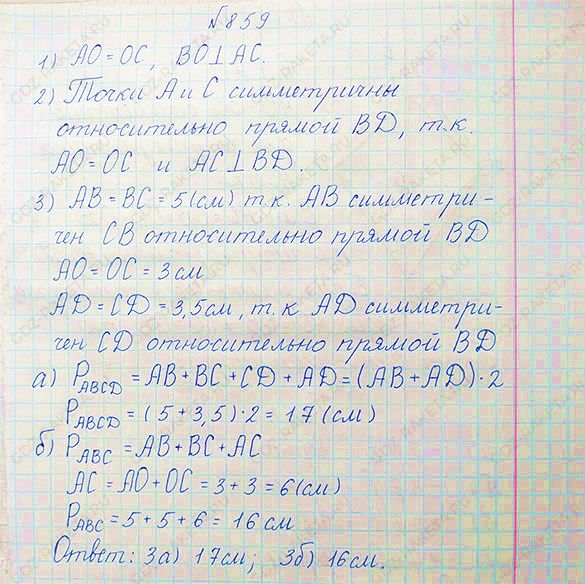 №859
1) AO = OC, BO⊥AC.
2) Точки A и C симметричны
относительно прямой BD, т.к.
AO = OC и AC⊥BD.
3) AB = BC = 5(см) т.к. AB симметри-
чен CB относительно прямой BD
AO = OC = 3 см
AD = CD = 3,5см, т.к AD симметри-
чен CD относительно прямой BD
а) P_ABCD = AB + BC + CD + AD = (AB + AD)·2
P_ABCD = (5 + 3,5)·2 = 17 (см)
б) P_ABC = AB + BC + AC
AC = AO + OC = 3 + 3 = 6(см)
P_ABC = 5 + 5 + 6 = 16 см
Ответ: 3а) 17см; 3б) 16см.
GDZ-RAKETA.RU